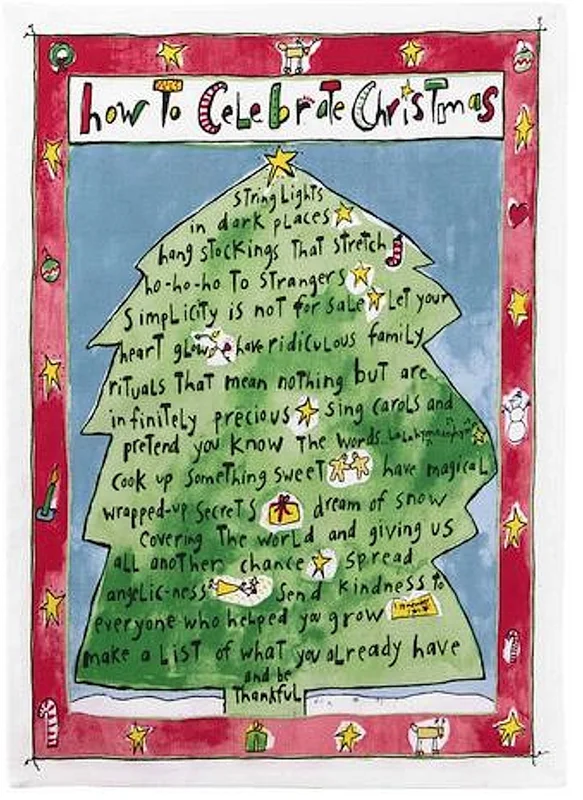 how To CeLebrate ChrisTmas
string Lights
in dark pLaces
hang stockings That stretch
ho-ho-ho To strangers
SimpLiciTy is not for saLe Let your
heart glow have ridicuLous family
rituaLs That mean nothing but are
infinitely precious sing carols and
pretend you Know The words
cook up something sweet have magicaL
wrapped-up secreTs dream of snow
covering The worLd and giving us
aLL another chance spread
angeLic-ness send kindness to
everyone who heLped you grow
make a LisT of what you aLready have
and be
ThankfuL